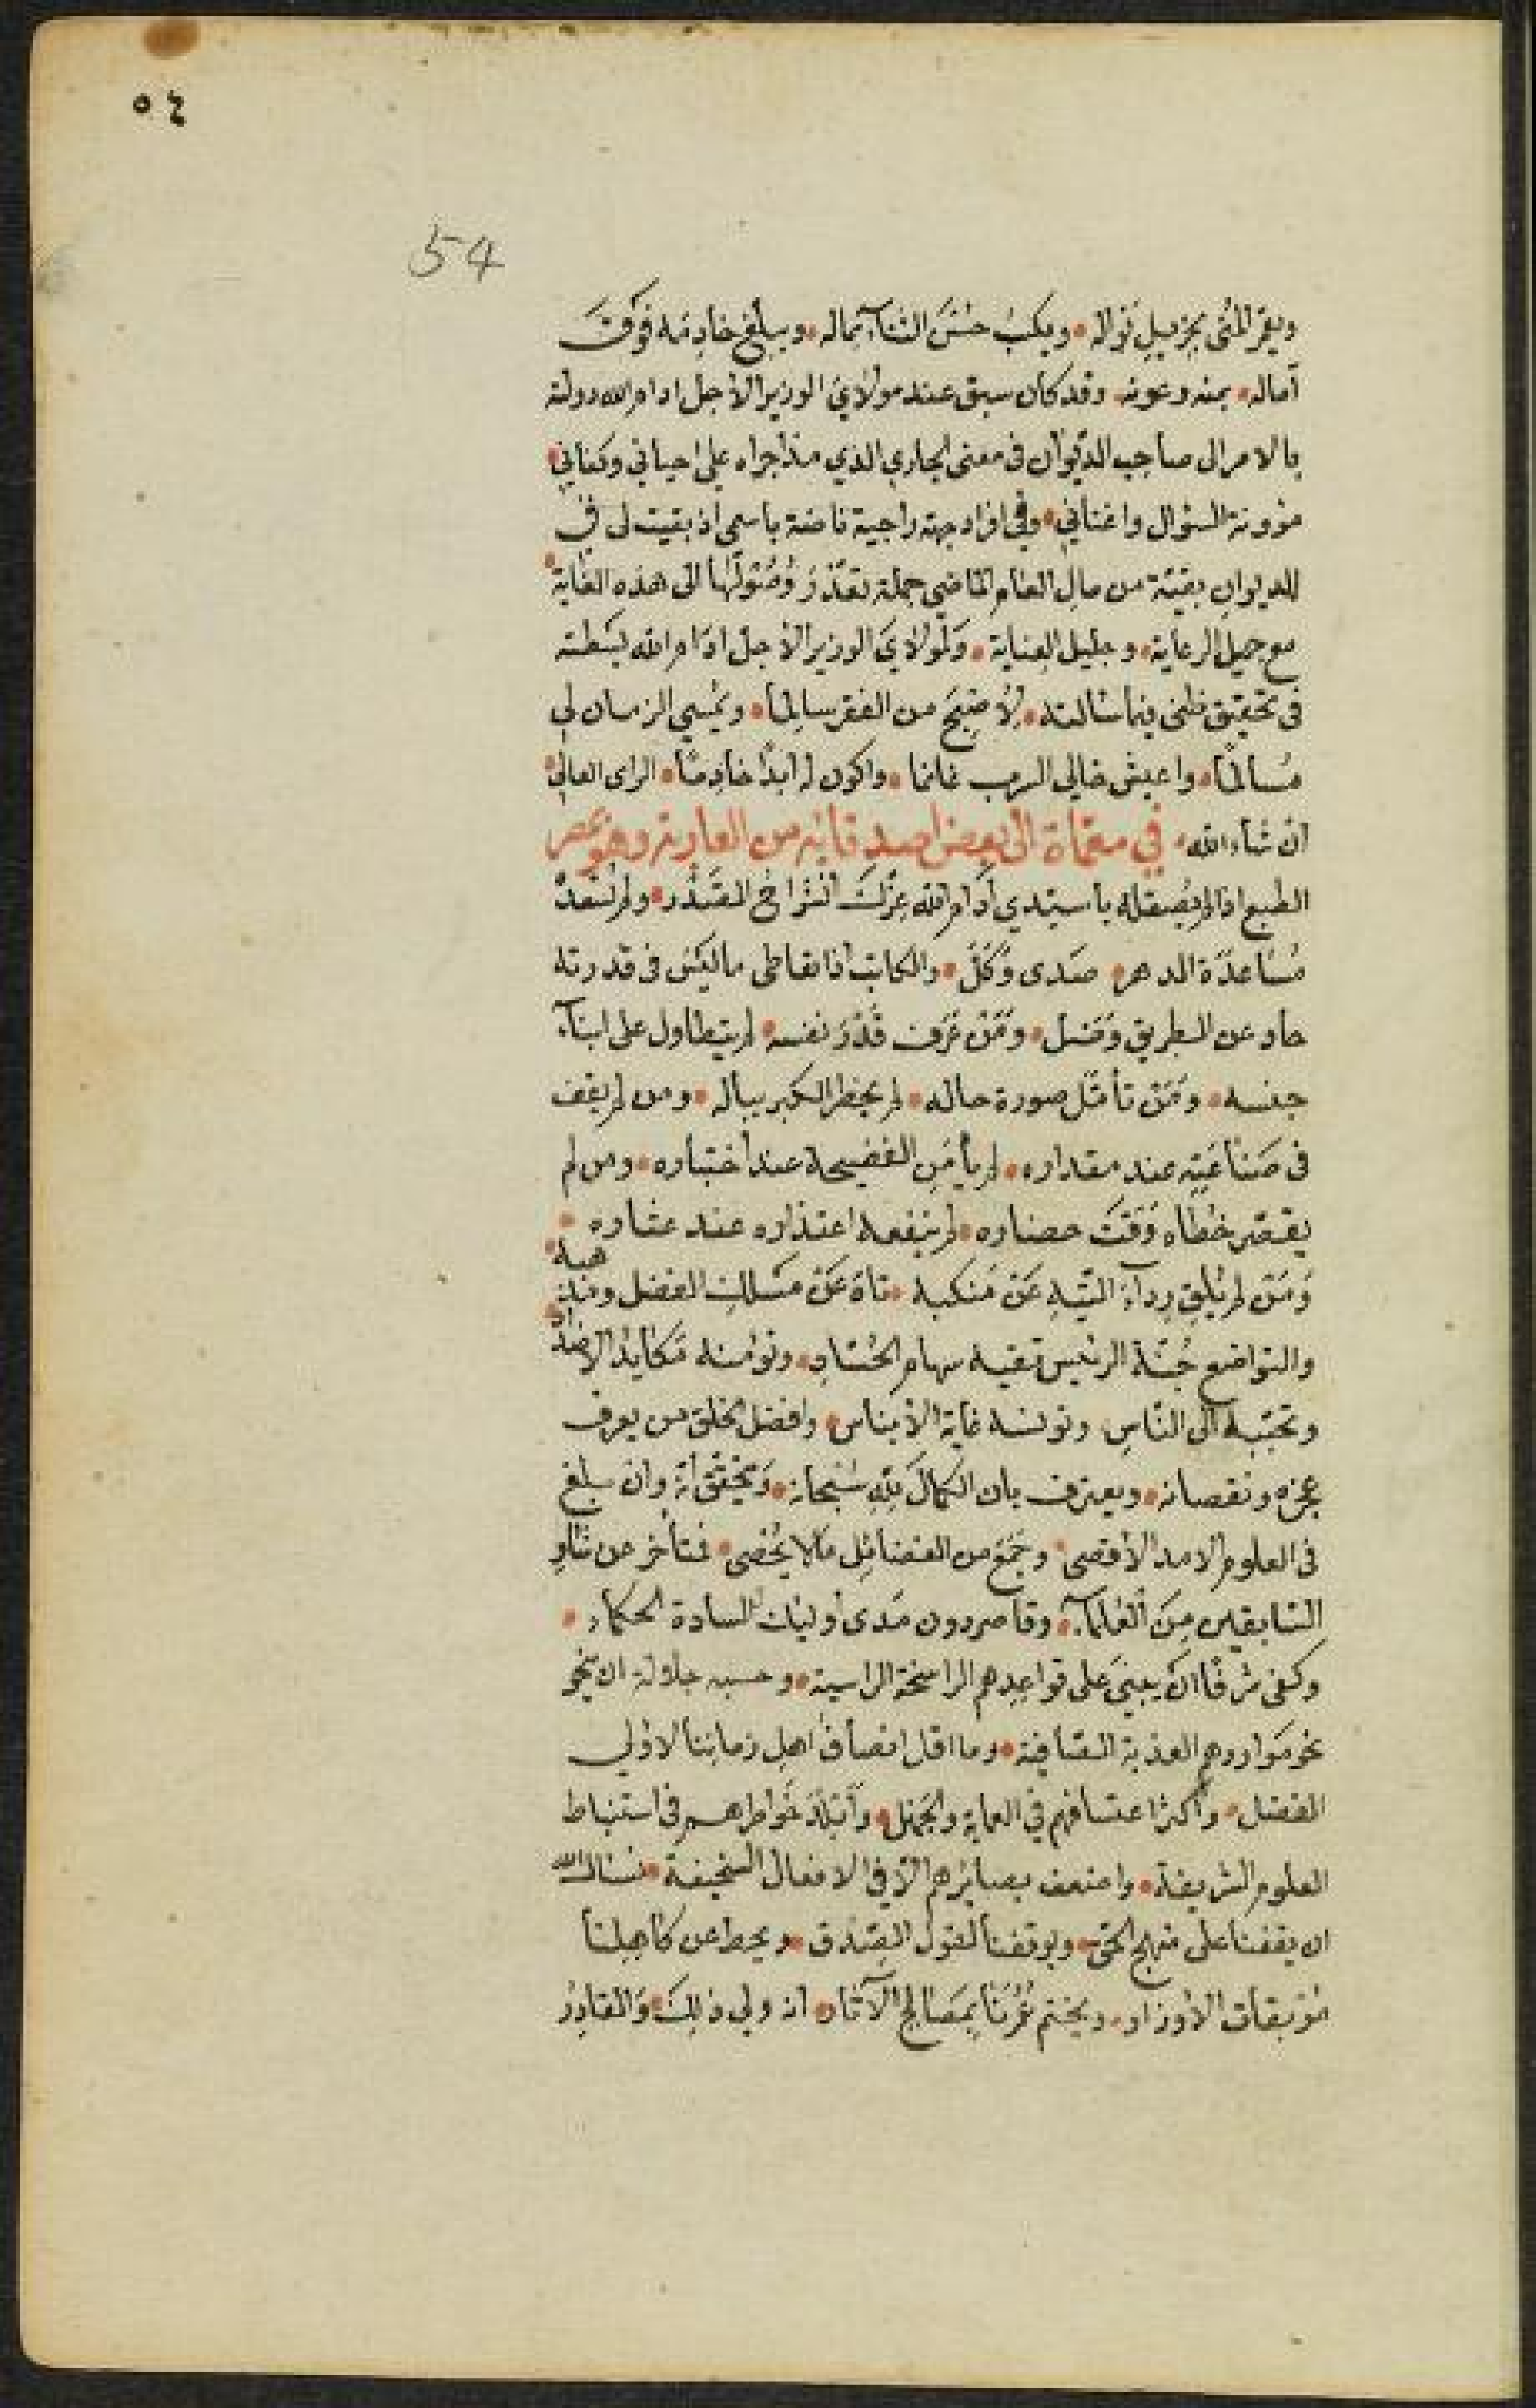 ٥٤
54
ويعمّ المُنى بجزيلِ نَواله ويكبُ حُسْنَ الثناءِ بماله ويبلّغ خادِمَه فوقَ
آماله بمنه وعونه وقد كان سبق عند مولاي الوزير الاجل ادام الله دولته
بالامر الى صاحب الديوان فى معنى الجاري الذي مذ اجراه علي احياني وكفاني
مؤونة السؤال واغناني وفى افراد جهة راجية ناضة باسمى اذ بقيت لى في
الديوان بقيّة من مالِ العام الماضي جملة تعذّرَ وُصُولها الى هذه الغاية
مع جميل الرعاية وجليل العناية ولمولايَ الوزير الأجل ادام الله بَسطته
فى تحقيق ظنى فيما سالته لأُصْبِحَ من الفقر سالِماً ويمُسي الزمان لي
مُسالماً واعيش خالي السرب غانما واكون له ابدًا خادِمًا الراى العالي
ان شاء الله في معماة الى بعض اصدقائه من العلوية وهو بمصر
الطبع اذا لم يُصقله ياسيّدي أدام الله عِزّكَ انشراحُ الصَدْر ولم تَنقدْ
مُسَاعدَة الدهر صَدى وَكَلّ والكاتب اذا تعاطى ما ليسَ فى قدرته
حاد عن الطريق وَضَل ومَنْ عَرف قَدْرَ نفسه لم يتطاول على ابناء
جنسه ومَنْ تأمّل صورة حاله لم يخطر الكبر بباله ومن لم يقف
فى صَناعَتِه عند مقداره لم يأمَنِ الفضيحة عند اختباره ومن لم
يقصّر خُطاه وَقتَ حضاره لم ينفعه اعتذاره عند عثاره
وَمَن لم يُلقِ رِداءَ التِّيهِ عَنْ مَنكبيه تاهَ عَنْ مَسالك الفضل ومذاهبه
والتواضع جُنّة الرئيس تقيه سهام الحُسّادِ وتؤمنه مَكايدَ الاضداد
وتحبّبه الى النّاسِ وتونسه غاية الأيناس وافضل الخلق من يعرف
عجزه ونقصانه ويعترف بان الكمالَ للهِ سُبْحانه وَيتحقّق أنّه وان بلغ
فى العلوم الامد الأقصى وجَمَعَ من الفضائِل مَالا يُحْصى فمتأخر عن شاوِ
السّابقين مِنَ العُلماء وقاصر دون مَدى أوليك السادة الحكماء
وكفى شرفًا ان يبنيَ على قواعِدِهم الراسخة الراسية وحسبه جلالة ان ينحو
نحو مَواردهم العذبة الصّافية وما اقل انصاف اهلِ زماننا لاولي
الفضل واكثر اعتسافهم في العماية والجَهْل وأبْلَدَ خَواطرهم فى استنباط
العلوم الشريفة واضعف بصايرهم الّا في الافعال السخيفة نسال الله
ان يقفنا على منهج الحق ويوفقنا لقول الصِّدق ويحط عن كاهِلنا
مُوْبقات الأوزار ويختم عُمُرَنا بِصَالح الآثار انه ولي ذلِكَ وَالقادِرُ